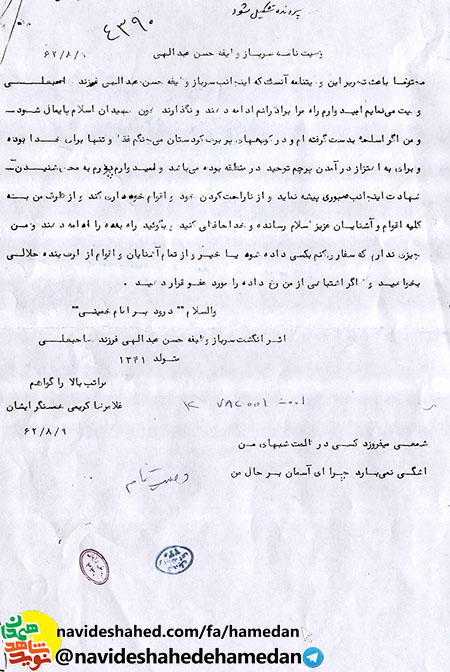 پرونده تشکیل شود
۴۳۹۰
وصیت نامه سرباز وظیفه حسن عبدالهی ۶۲/۸/۹
محترما باعث تحریر این وصیتنامه آنست که اینجانب سرباز وظیفه حسن عبدالهی فرزند
وصیت می‌نمایم امیدوارم راه مرا برادرانم ادامه دهند و نگذارند خون شهیدان اسلام پایمال شود
و من اگر اسلحه بدست گرفته ام و در کوههای پر برف کردستان می‌جنگم فقط و تنها برای خدا بوده
و برای به اهتزاز در آمدن پرچم توحید در منطقه بوده می‌باشد و امیدوارم پدرم به محض شنیدن
شهادت اینجانب صبوری پیشه نماید و از ناراحت کردن خود و اقوام خودداری کند و از طرف من بسته
کلیه اقوام و آشنایان عزیز سلام رسانده و خداحافظی کنید و بگوئید راه بنده را ادامه دهند و من
چیزی ندارم که سفارش کنم بکسی داده شود یا خیر و از تمام آشنایان و اقوام از طرف بنده حلالی
بخواهید و اگر اشتباهی از من رخ داده را مورد عفو قرار دهید
والسلام "درود بر امام خمینی"
اثر انگشت سرباز وظیفه حسن عبدالهی فرزند
متولد ۱۳۴۱
مراتب بالا را گواهم
غلامرضا کریمی همسنگر ایشان
۶۲/۸/۹
شمعی میفروزد کسی در ظلمت شبهای من
اشکی نمی‌بارد چرا ای آسمان بر حال من
وصیت نام
نوید شاهد همدان
navideshahed.com/fa/hamedan
@navideshahedehamedan